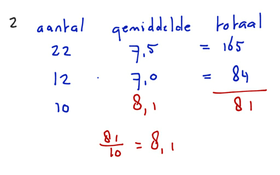 2 aantal gemiddelde totaal
22 7,5 = 165
12 · 7,0 = 84
10 8,1 81
81/10 = 8,1